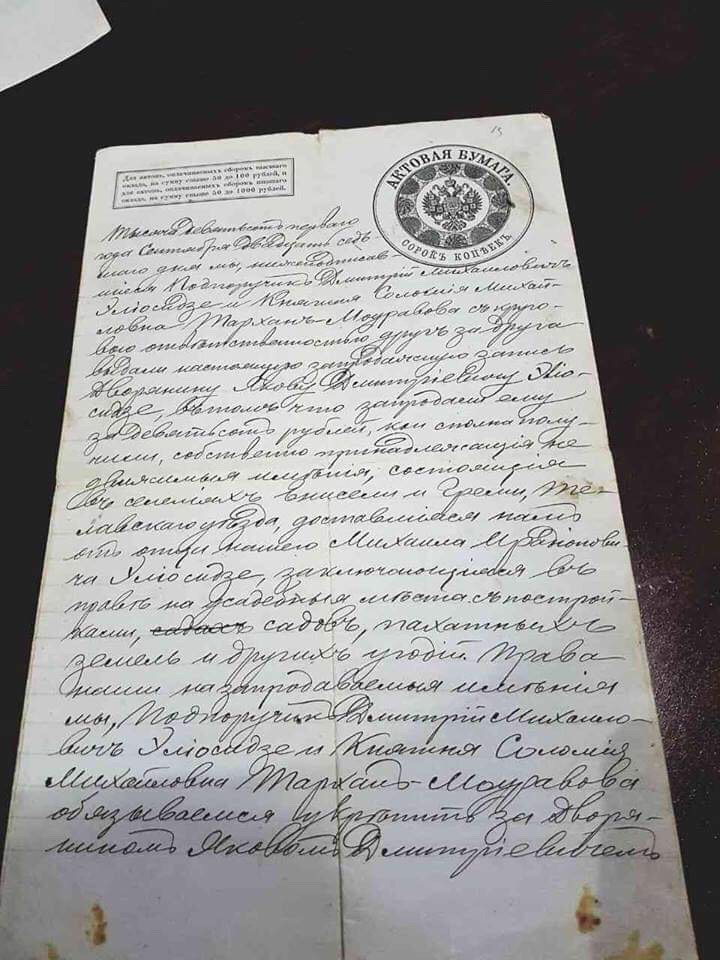 15
Для актовъ, оплачиваемыхъ сборомъ высшаго
оклада, на сумму свыше 50 до 100 рублей, и
для актовъ, оплачиваемыхъ сборомъ низшаго
оклада, на сумму свыше 50 до 1000 рублей.
АКТОВАЯ БУМАГА.
СОРОКЪ КОПѢЕКЪ.
Тысяча девятьсотъ перваго
года Сентября двадцать седь-
маго дня мы, нижеподписав-
шіеся Подпоручикъ Дмитрій Михаиловичъ
и Княгиня Соломія Михай-
ловна Тарханъ-Моуравова съ круго-
вою отвѣтственностью другъ за друга
выдали настоящую запродажную запись
Дворянину Якову Дмитріевичу
въ томъ что запродали ему
за девятьсотъ рублей, кои сполна полу-
чили, собственно принадлежащія не
движимыя имѣнія, состоящія
въ селеніяхъ Енисели и Греми, Те-
лавскаго уѣзда, доставшіяся намъ
отъ отца нашего Михаила
заключающіяся въ
правѣ на усадебныя мѣста съ построй-
ками, садахъ садовъ, пахатныхъ
земель и другихъ угодій. Права
наши на запродаваемыя имѣнія
мы, Подпоручикъ Дмитрій Михаило-
вичъ и Княгиня Соломія
Михайловна Тарханъ-Моуравова
обязываемся укрѣпить за Дворя-
ниномъ Яковомъ Дмитріевичемъ